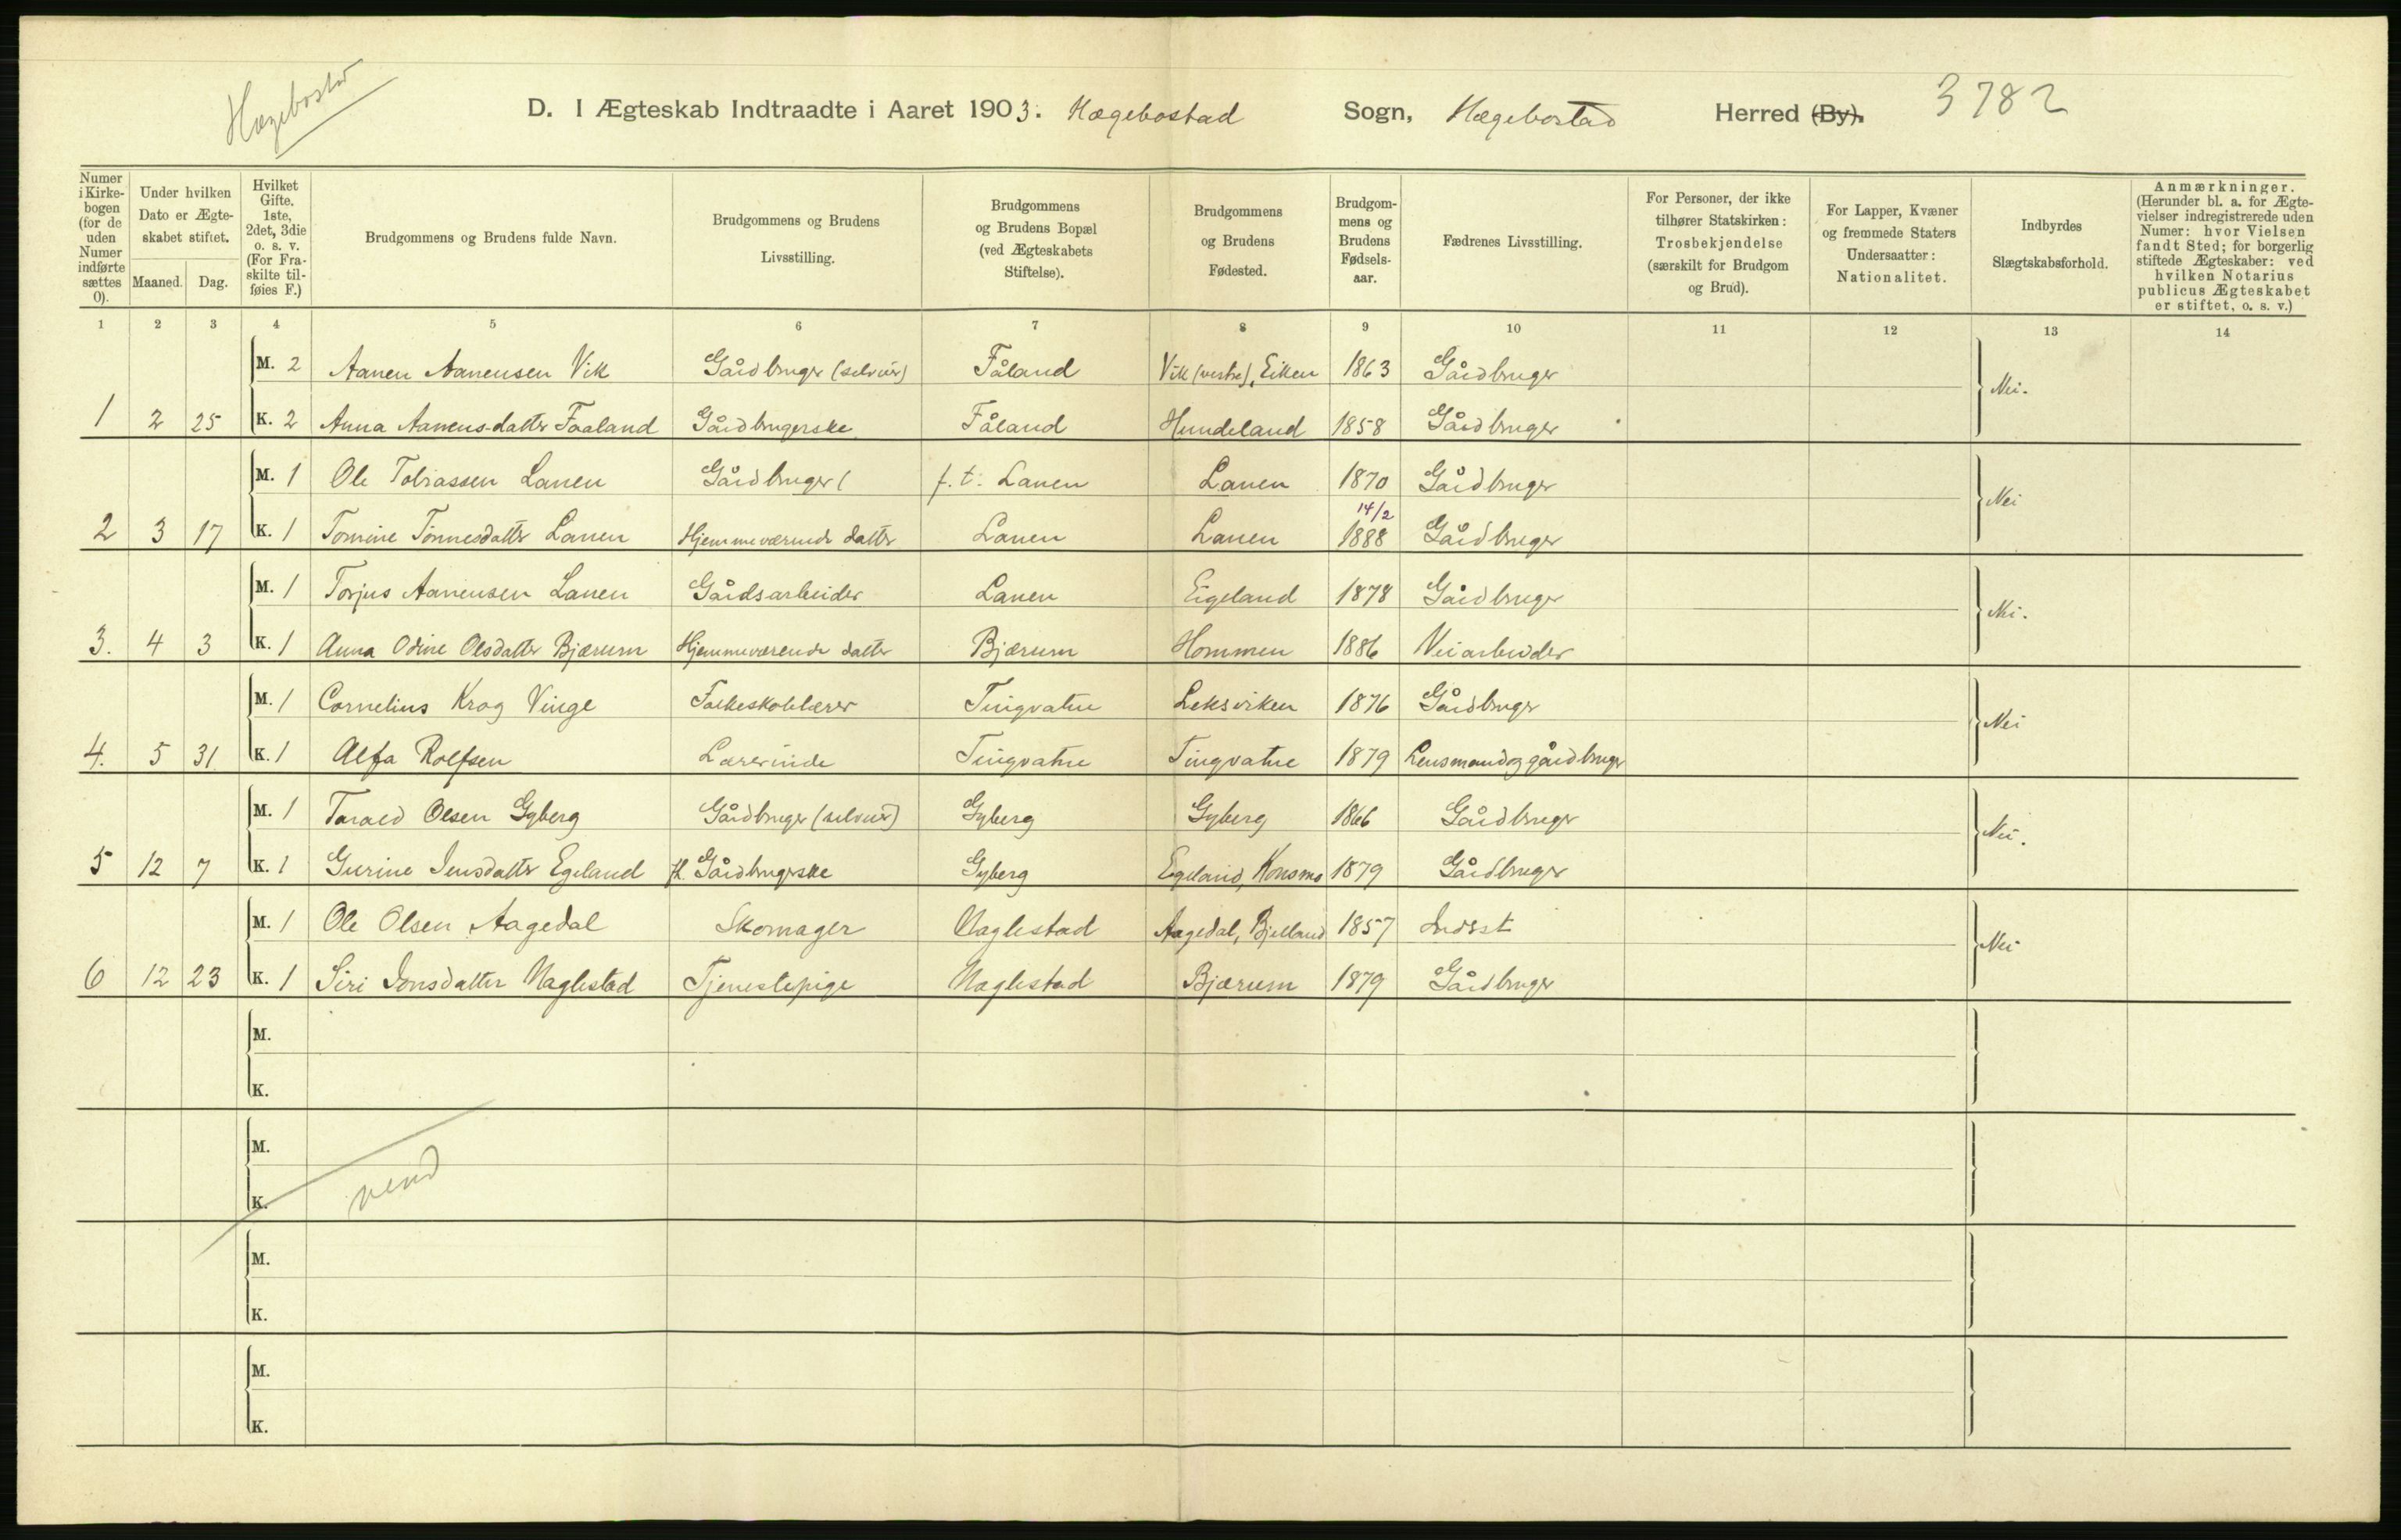 Hægebostad
D. I Ægteskab Indtraadte i Aaret 1903. Hægebostad Sogn, Hægebostad Herred (By). 3782
Numer i Kirkebogen (for de uden Numer indførte sættes 0).
Under hvilken Dato er Ægteskabet stiftet.
Maaned. Dag.
Hvilket Gifte. 1ste, 2det, 3die o. s. v. (For Fraskilte tilføies F.)
Brudgommens og Brudens fulde Navn.
Brudgommens og Brudens Livsstilling.
Brudgommens og Brudens Bopæl (ved Ægteskabets Stiftelse).
Brudgommens og Brudens Fødested.
Brudgommens og Brudens Fødselsaar.
Fædrenes Livsstilling.
For Personer, der ikke tilhører Statskirken: Trosbekjendelse (særskilt for Brudgom og Brud).
For Lapper, Kvæner og fremmede Staters Undersaatter: Nationalitet.
Indbyrdes Slægtskabsforhold.
Anmærkninger. (Herunder bl. a. for Ægtevielser indregistrerede uden Numer: hvor Vielsen fandt Sted; for borgerlig stiftede Ægteskaber: ved hvilken Notarius publicus Ægteskabet er stiftet, o. s. v.)
1 2 3 4 5 6 7 8 9 10 11 12 13 14
M. 2 Aanen Aanensen Vik Gårdbruger (selveier) Fåland Vik (vestre), Eiken 1863 Gårdbruger Nei.
1 2 25 K. 2 Anna Aanens-datter Faaland Gårdbrugerske Fåland Hundeland 1858 Gårdbruger
M. 1 Ole Tobiassen Lauen Gårdbruger ( f. t. Lauen Lauen 1870 Gårdbruger Nei
14/2
2 3 17 K. 1 Tomine Tönnesdatter Lauen Hjemmeværende datter Lauen Lauen 1888 Gårdbruger
M. 1 Torjus Aanensen Lauen Gårdsarbeider Lauen Eigeland 1878 Gårdbruger Nei.
3. 4 3 K. 1 Anna Odine Olsdatter Bjærum Hjemmeværende datter Bjærum Hommen 1886 Veiarbeider
M. 1 Cornelius Krog Vinge Folkeskolelærer Tingvatne Leksviken 1876 Gårdbruger Nei
4. 5 31 K. 1 Alfa Rolfsen Lærerinde Tingvatne Tingvatne 1879 Lensmand og gårdbruger
M. 1 Tarald Olsen Gyberg Gårdbruger (selveier) Gyberg Gyberg 1866 Gårdbruger Nei.
5 12 7 K. 1 Gurine Jensdatter Egeland Gårdbrugerske Gyberg Egeland, Konsmo 1879 Gårdbruger
M. 1 Ole Olsen Aagedal Skomager Naglestad Aagedal, Bjelland 1857 Inderst Nei
6 12 23 K. 1 Siri Jonsdatter Naglestad Tjenestepige Naglestad Bjærum 1879 Gårdbruger
M.
K.
M.
K. vend
M.
K.
M.
K.